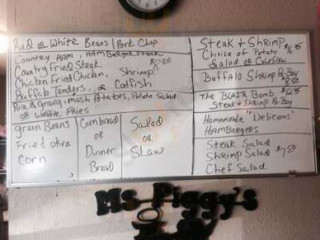 Red or White Beans / Pork Chop
Country Ham, Hamburger Steak
Country Fried Steak,
Chicken Fried Chicken, Shrimp
Buffalo Tenders, or Catfish
Rice & Gravy, mash Potatoes, Potato Salad
or White Fries
green Beans
Fried okra
Corn
Cornbread
or
Dinner
Bread
Salad
or
Slaw
Steak & Shrimp
Choice of Potato
Salad or Coleslaw
Buffalo Shrimp Po-Boy
The BLAZR Bomb
Steak & Shrimp Po Boy
Homemade "Delicious"
Hambergers
Steak Salad
Shrimp Salad
Chef Salad
Ms. Piggy's